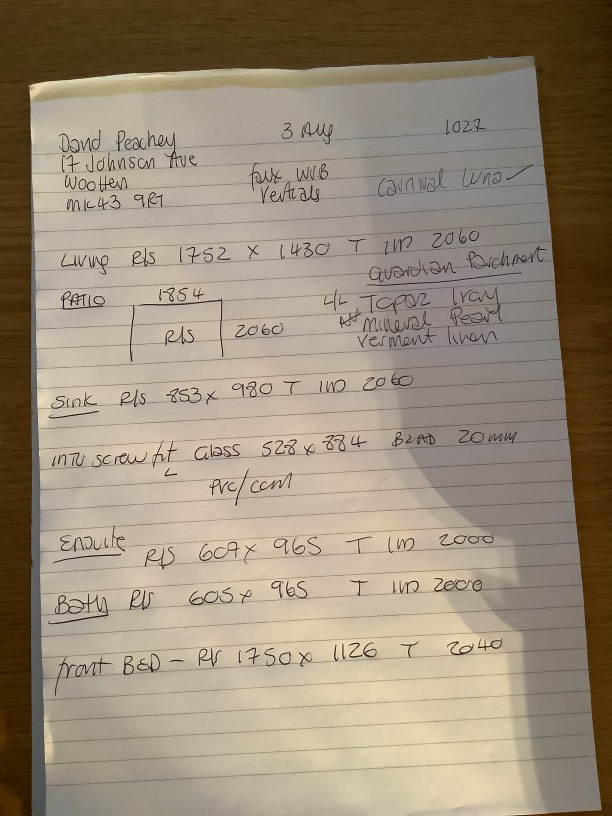 David Peachey 3 Aug 1027
17 Johnson Ave
Wootten faux WVB Carnival Luna ✓
MK43 9RT Verticals
Living R/S 1752 x 1430 T 2060
Guardian Parchment
PATIO 1854
R/S 2060
Topaz Ivory
Mineral Pearl
Verment linen
Sink R/S 853 x 980 T 2060
INTU screw fit Glass 528 x 884 BEAD 20mm
PVC/
Ensuite R/S 607 x 965 T 2000
Bath R/S 605 x 965 T 2000
front BED - R/S 1750 x 1126 T 2040